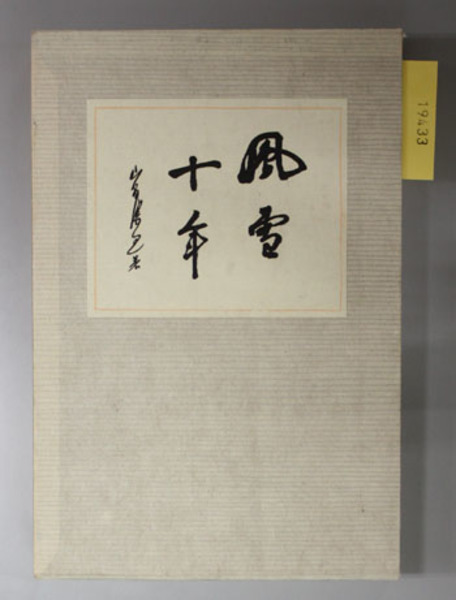 風雪
十年
19433